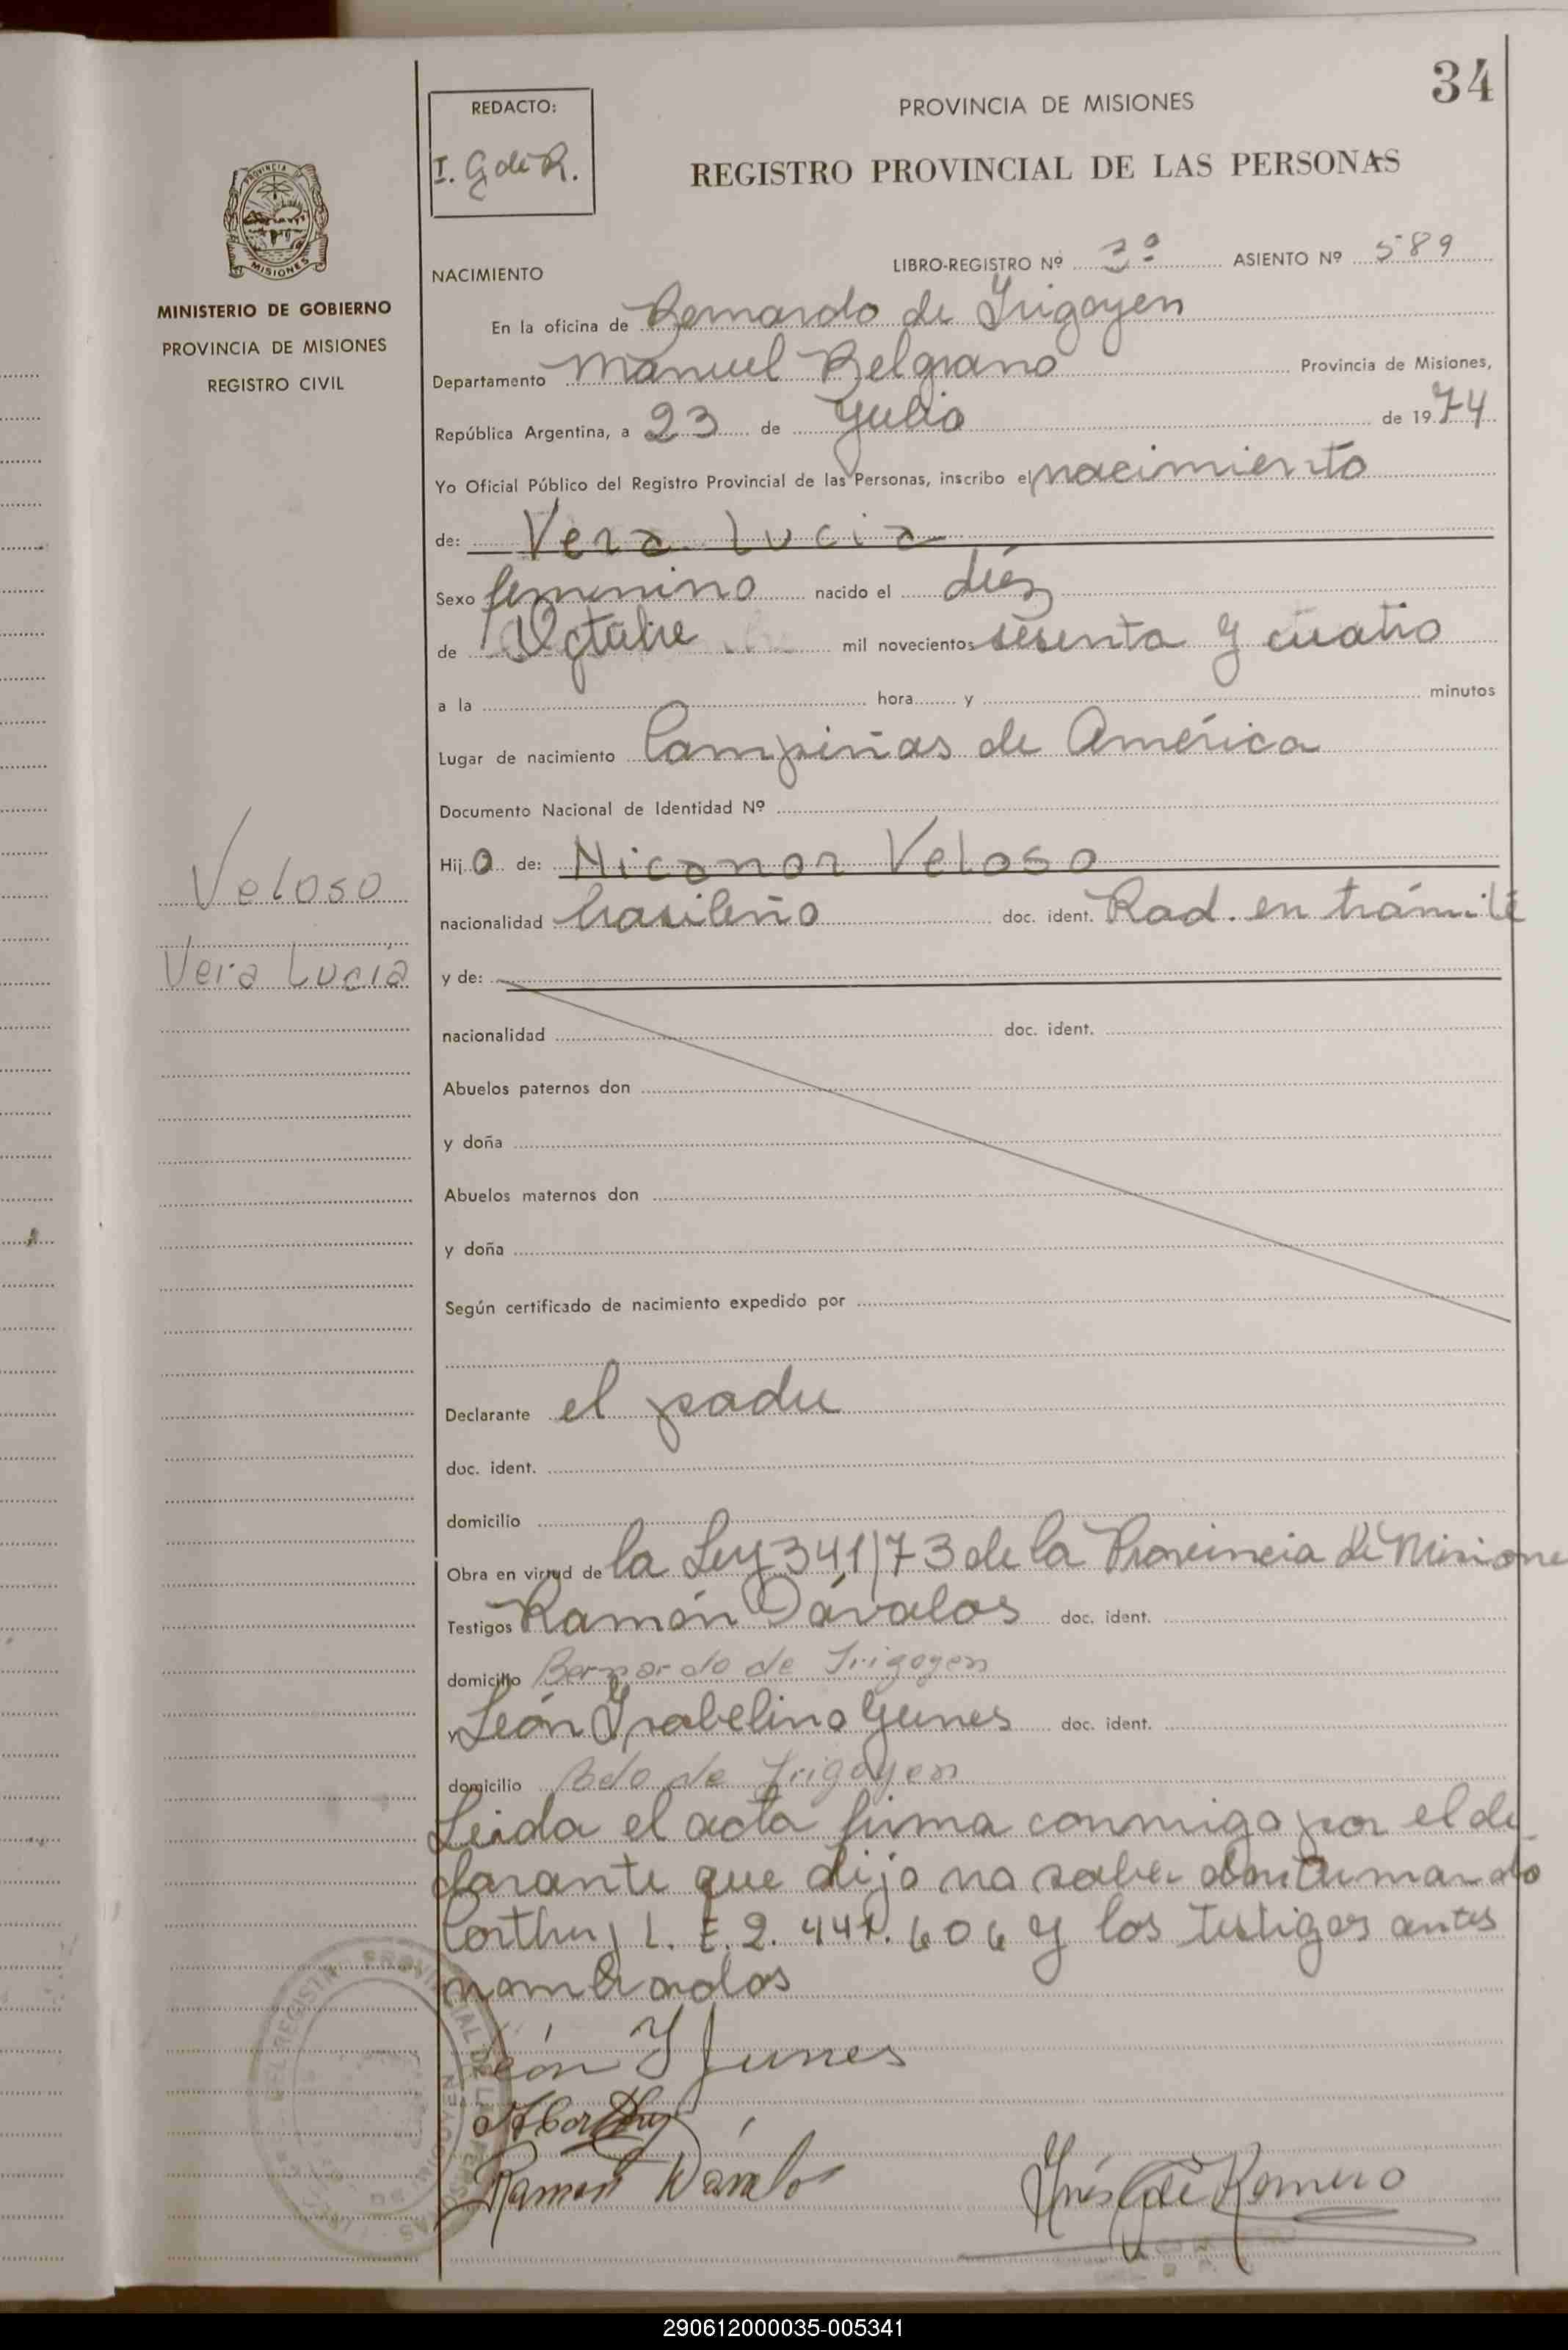 34
REDACTO:
I. G de R.
PROVINCIA DE MISIONES
REGISTRO PROVINCIAL DE LAS PERSONAS
PROVINCIA
MISIONES
MINISTERIO DE GOBIERNO
PROVINCIA DE MISIONES
REGISTRO CIVIL
NACIMIENTO
LIBRO-REGISTRO Nº 3º ASIENTO Nº 589
En la oficina de Bernardo de Irigoyen
Departamento Manuel Belgrano Provincia de Misiones,
República Argentina, a 23 de Julio de 1974
Yo Oficial Público del Registro Provincial de las Personas, inscribo el nacimiento
de: Vera Lucia
Sexo femenino nacido el diéz
de Octubre mil novecientos sesenta y cuatro
a la hora y minutos
Lugar de nacimiento Campiñas de América
Documento Nacional de Identidad Nº
Hij a de: Nicanor Veloso
Veloso
nacionalidad brasileño doc. ident. Rad. en trámite
Vera Lucia
y de:
nacionalidad doc. ident.
Abuelos paternos don
y doña
Abuelos maternos don
y doña
Según certificado de nacimiento expedido por
Declarante el padre
doc. ident.
domicilio
Obra en virtud de la Ley 341/73 de la Provincia de Misiones
Testigos Ramón Dávalos doc. ident.
domicilio Bernardo de Irigoyen
y León Ysabelino Yunes doc. ident.
domicilio Bdo de Irigoyen
Leida el acta firma conmigo por el de
clarante que dijo no saber
L. E. 2. 441. 606 y los testigos antes
nombrados
León Y Junes
Ramón Dávalos
Inés G de Romero
290612000035-005341